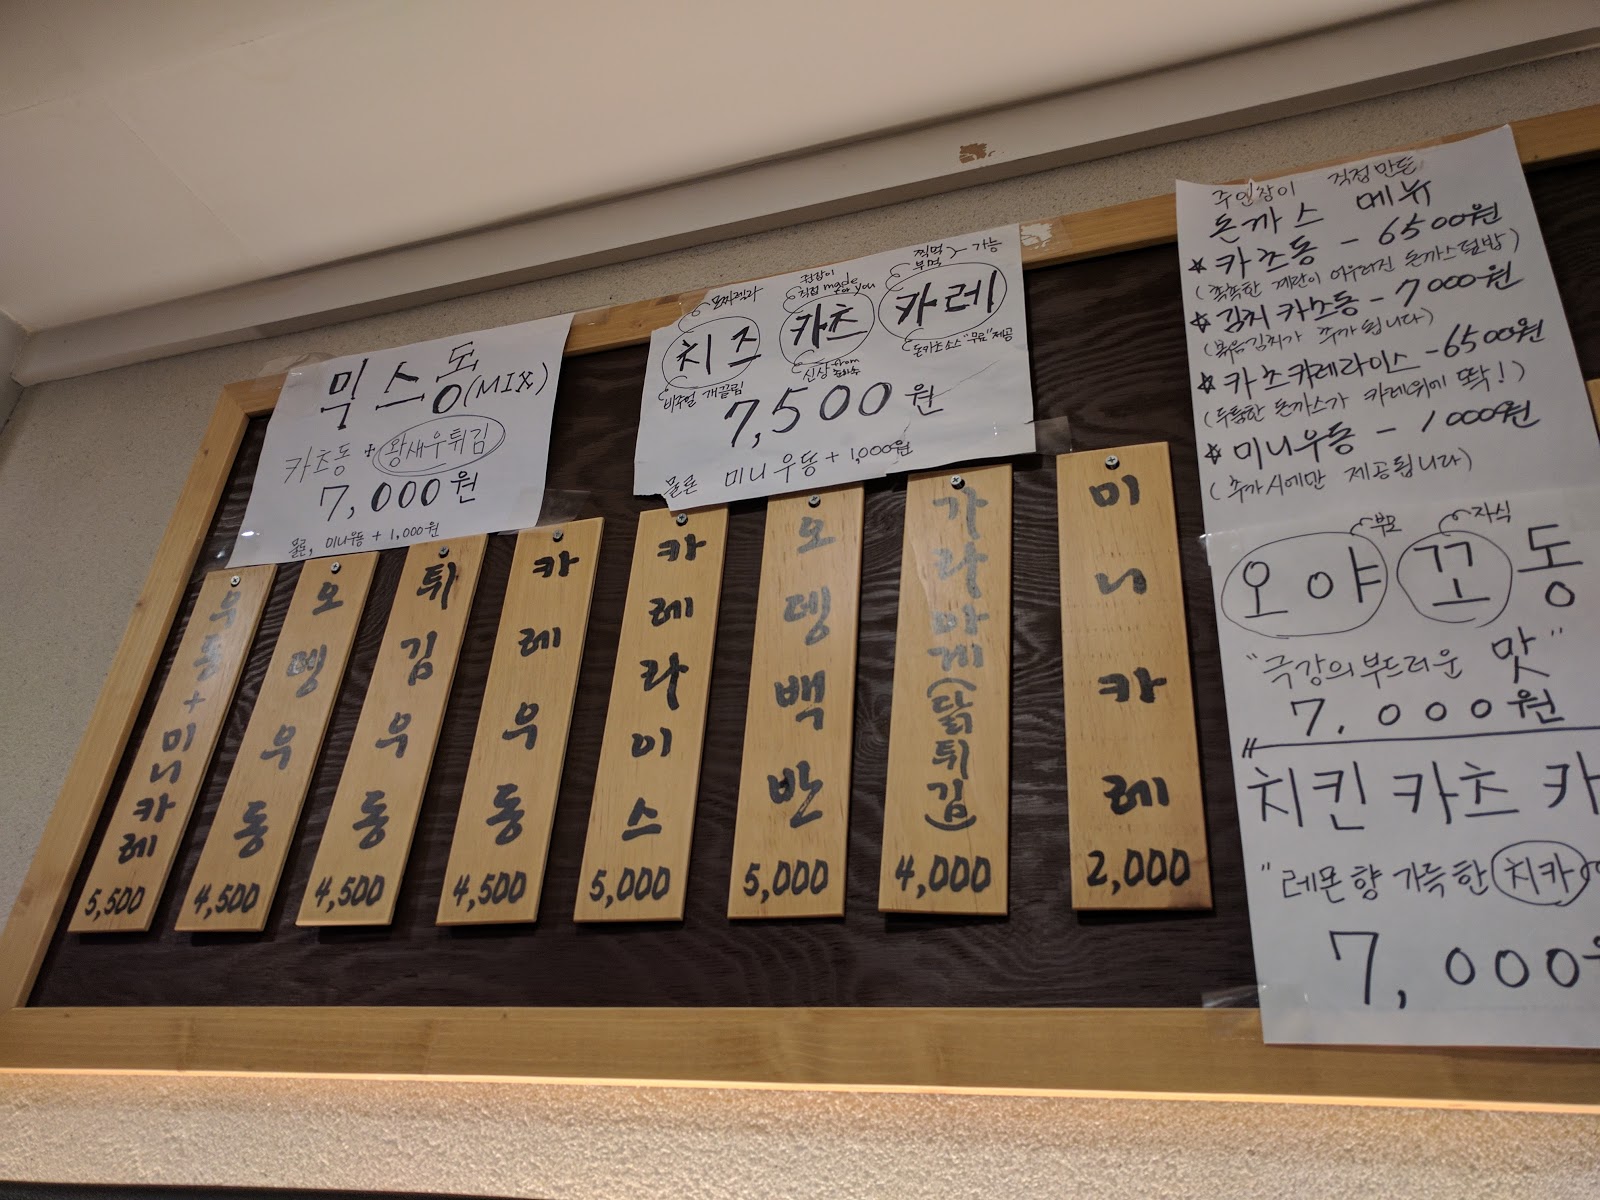 믹스동(MIX)
카츠동 + 왕새우튀김
7,000원
물론, 미니우동 + 1,000원
모짜렐라
직접 made for you
찍먹 부먹 가능
치즈 카츠 카레
비주얼 깨끌림
신상 from
돈카츠소스 "무료" 제공
7,500원
물론 미니우동 + 1,000원
우동+미니카레
5,500
오뎅우동
4,500
튀김우동
4,500
카레우동
4,500
카레라이스
5,000
오뎅백반
5,000
가라아게(닭튀김)
4,000
미니카레
2,000
주인장이 직접 만든
돈까스 메뉴
☆ 카츠동 - 6500원
(촉촉한 계란이 어우러진 돈까스덮밥)
☆ 김치카츠동 - 7000원
(볶음김치가 추가 됩니다)
☆ 카츠카레라이스 - 6500원
(두툼한 돈까스가 카레위에 딱!)
☆ 미니우동 - 1000원
(추가시에만 제공됩니다)
부모 자식
오야 꼬동
"극강의 부드러운 맛"
7,000원
치킨 카츠 카
"레몬향 가득한 치카
7,000원